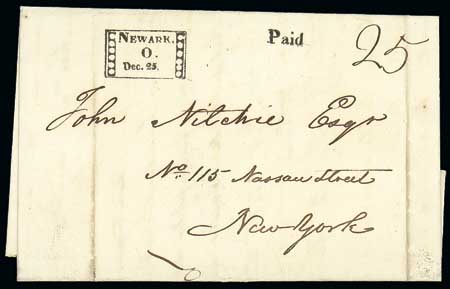 NEWARK.
O.
Dec. 25.
Paid
25
John Nitchie Esqr
No. 115 Nassau street
New York